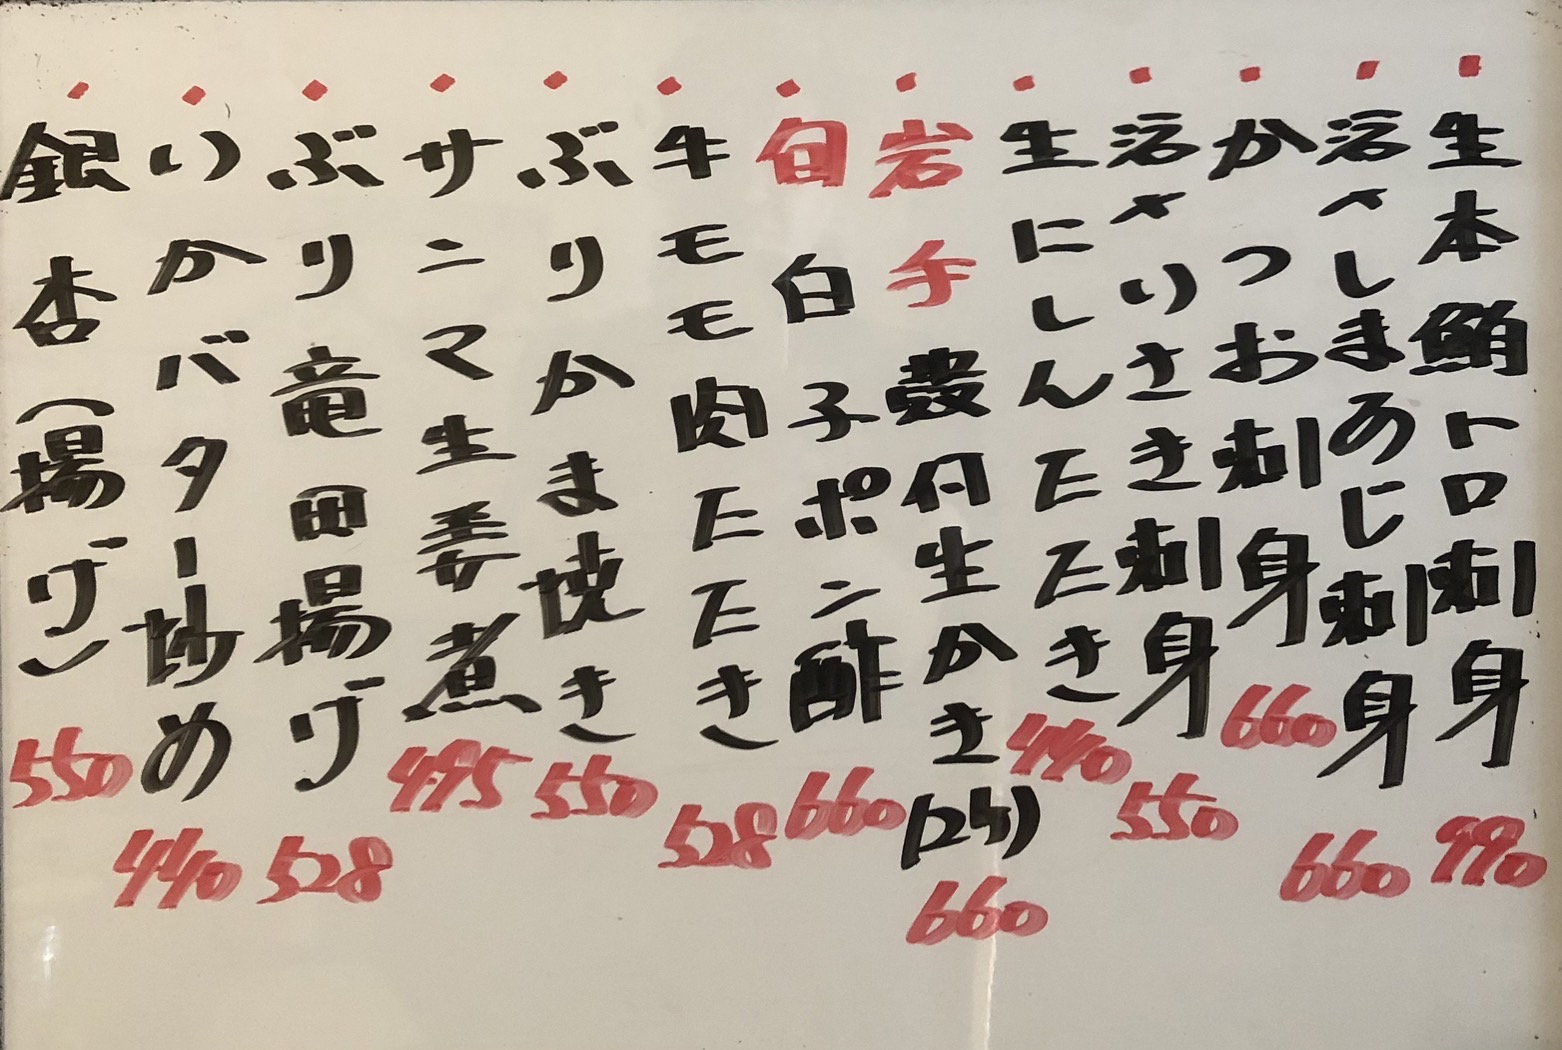 ・生本鮪トロ刺身 990
・活〆しまあじ刺身 660
・かつお刺身 660
・活〆いさき刺身 550
・生にしんたたき 440
・岩手 殻付生かき(2ケ) 660
・旬 白子ポン酢 660
・牛モモ肉たたき 528
・ぶりかま焼き 550
・サンマ生姜煮 495
・ぶり竜田揚げ 528
・いかバター炒め 440
・銀杏(揚げ) 550